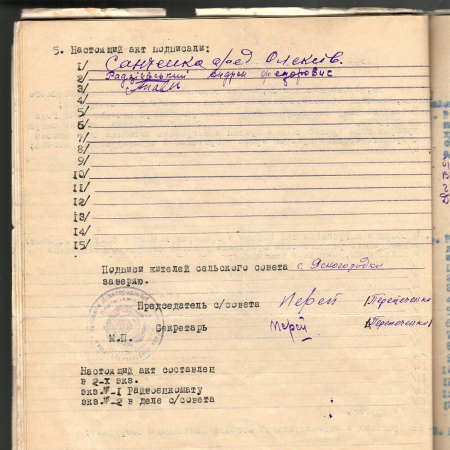 5. Настоящий акт подписали:
1/ Сантенка Фред Олексів.
2/ Радзієвський Андрей Федорович
3/
4/
5/
6/
7/
8/
9/
10/
11/
12/
13/
14/
15/
Подписи жителей сельского совета с. Ясногородка
заверяю.
Председатель с/совета
Секретарь
М.П.
Настоящий акт составлен
в 2-х экз.
экз.№-1 Райвоенкомату
экз.№-2 в деле с/совета